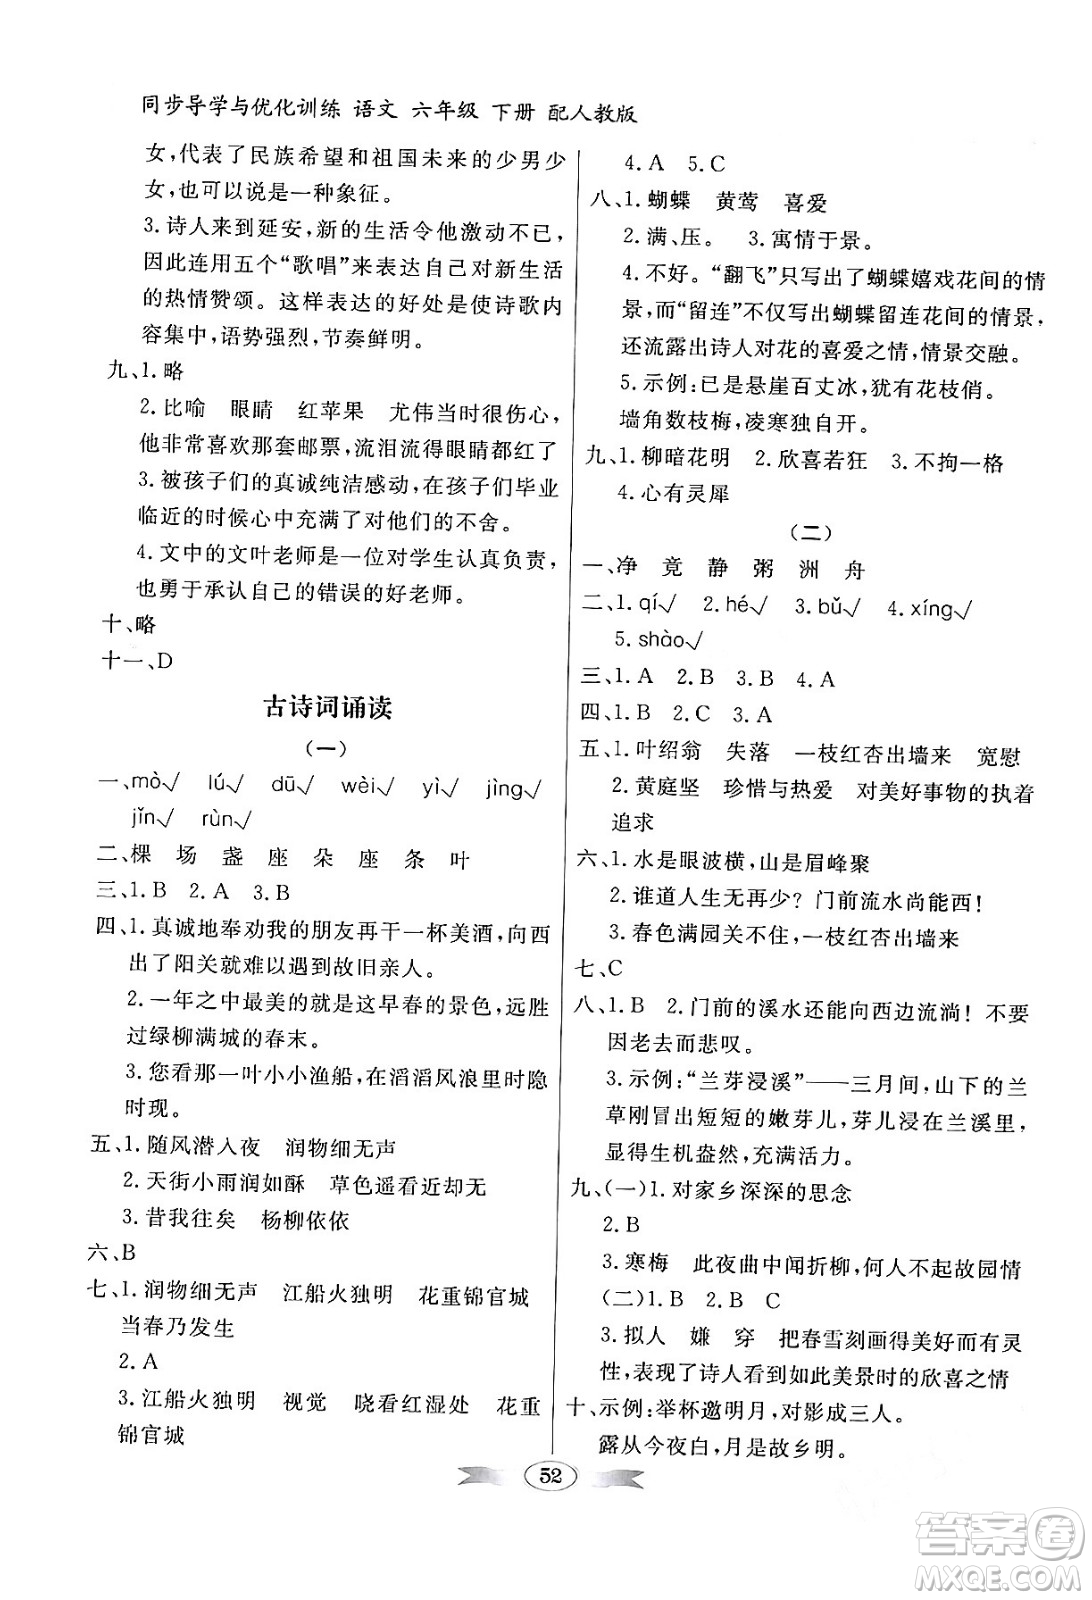 同步导学与优化训练 语文 六年级 下册 配人教版
女,代表了民族希望和祖国未来的少男少
女,也可以说是一种象征。
3.诗人来到延安,新的生活令他激动不已,
因此连用五个“歌唱”来表达自己对新生活
的热情赞颂。这样表达的好处是使诗歌内
容集中,语势强烈,节奏鲜明。
九、1.略
2.比喻 眼睛 红苹果 尤伟当时很伤心,
他非常喜欢那套邮票,流泪流得眼睛都红了
3.被孩子们的真诚纯洁感动,在孩子们毕业
临近的时候心中充满了对他们的不舍。
4.文中的文叶老师是一位对学生认真负责,
也勇于承认自己的错误的好老师。
十、略
十一、D
古诗词诵读
(一)
一、mò√ lú√ dū√ wèi√ yì√ jìng√
jǐn√ rùn√
二、棵 场 盏 座 朵 座 条 叶
三、1.B 2.A 3.B
四、1.真诚地奉劝我的朋友再干一杯美酒,向西
出了阳关就难以遇到故旧亲人。
2.一年之中最美的就是这早春的景色,远胜
过绿柳满城的春末。
3.您看那一叶小小渔船,在滔滔风浪里时隐
时现。
五、1.随风潜入夜 润物细无声
2.天街小雨润如酥 草色遥看近却无
3.昔我往矣 杨柳依依
六、B
七、1.润物细无声 江船火独明 花重锦官城
当春乃发生
2.A
3.江船火独明 视觉 晓看红湿处 花重
锦官城
4.A 5.C
八、1.蝴蝶 黄莺 喜爱
2.满、压。 3.寓情于景。
4.不好。“翻飞”只写出了蝴蝶嬉戏花间的情
景,而“留连”不仅写出蝴蝶留连花间的情景,
还流露出诗人对花的喜爱之情,情景交融。
5.示例:已是悬崖百丈冰,犹有花枝俏。
墙角数枝梅,凌寒独自开。
九、1.柳暗花明 2.欣喜若狂 3.不拘一格
4.心有灵犀
(二)
一、净 竞 静 粥 洲 舟
二、1.qí√ 2.hé√ 3.bǔ√ 4.xíng√
5.shào√
三、1.A 2.B 3.B 4.A
四、1.B 2.C 3.A
五、1.叶绍翁 失落 一枝红杏出墙来 宽慰
2.黄庭坚 珍惜与热爱 对美好事物的执着
追求
六、1.水是眼波横,山是眉峰聚
2.谁道人生无再少?门前流水尚能西!
3.春色满园关不住,一枝红杏出墙来
七、C
八、1.B 2.门前的溪水还能向西边流淌!不要
因老去而悲叹。
3.示例:“兰芽浸溪”——三月间,山下的兰
草刚冒出短短的嫩芽儿,芽儿浸在兰溪里,
显得生机盎然,充满活力。
九、(一)1.对家乡深深的思念
2.B
3.寒梅 此夜曲中闻折柳,何人不起故园情
(二)1.B 2.B C
3.拟人 嫌 穿 把春雪刻画得美好而有灵
性,表现了诗人看到如此美景时的欣喜之情
十、示例:举杯邀明月,对影成三人。
露从今夜白,月是故乡明。
52
答案圈
MXQE.COM